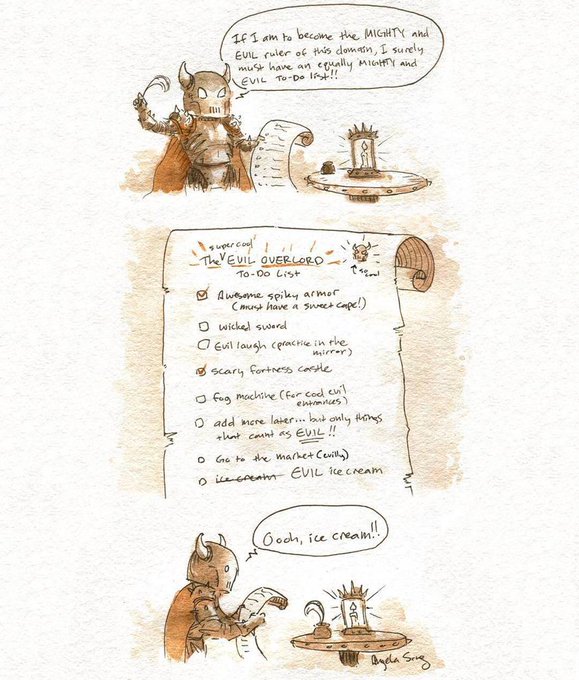 If I am to become the MIGHTY and
EVIL ruler of this domain, I surely
must have an equally MIGHTY and
EVIL TO-DO list!!
supercool
The EVIL OVERLORD
TO-DO LIST
so
cool
Awesome spiky armor
(must have a sweet cape!)
wicked sword
Evil laugh (practice in the
mirror)
scary fortress castle
fog machine (for cool evil
entrances)
add more later... but only things
that count as EVIL!!
Go to the market (evilly)
ice cream EVIL ice cream
Oooh, ice cream!!
Angela